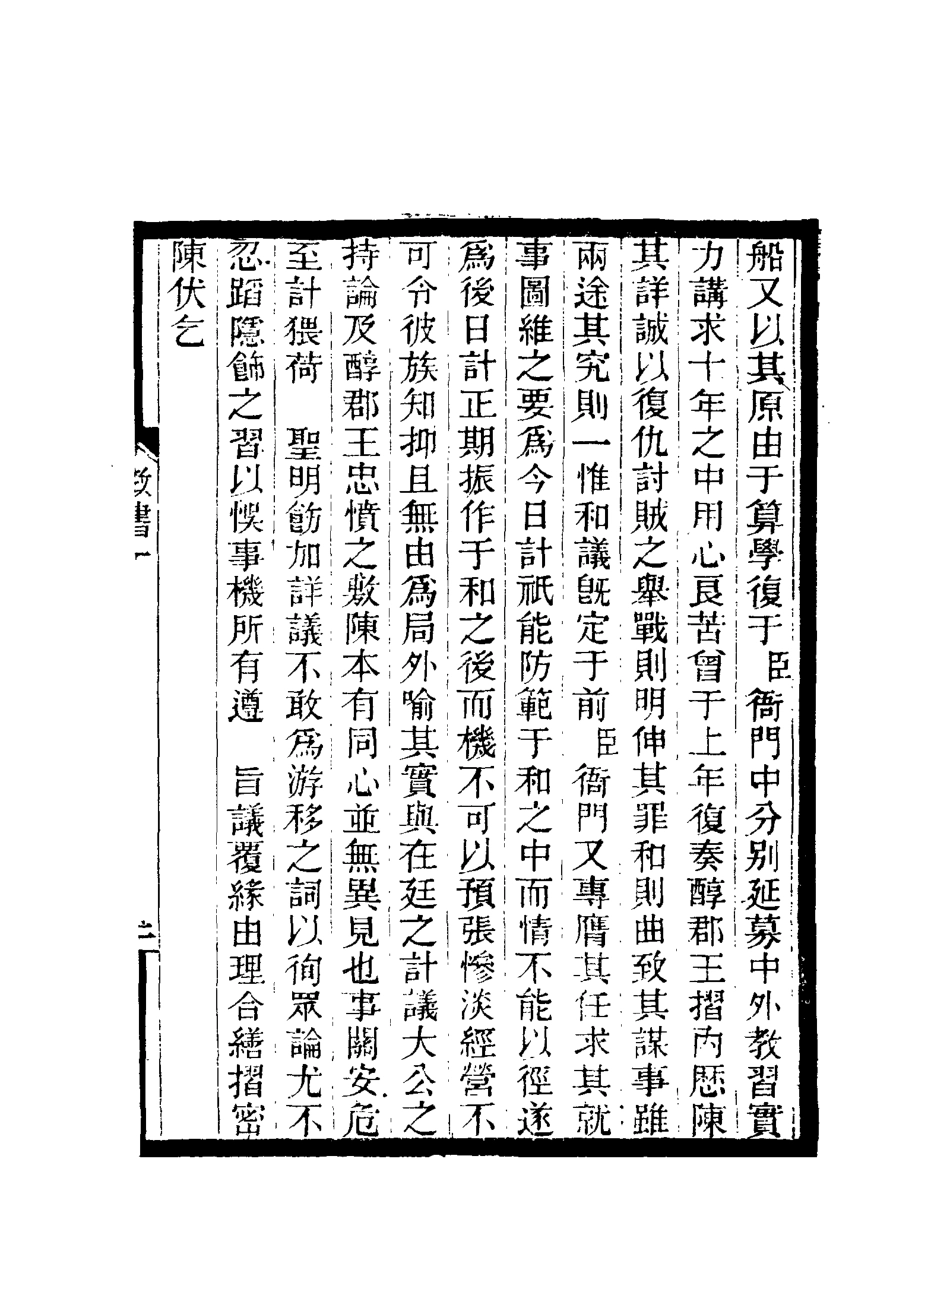 船又以其原由于算學復于臣衙門中分别延募中外教習實
力講求十年之中用心良苦曾于上年復奏醇郡王摺內歷陳
其詳誠以復仇討賊之舉戰則明伸其罪和則曲致其謀事雖
兩途其究則一惟和議旣定于前臣衙門又專膺其任求其就
事圖維之要爲今日計祇能防範于和之中而情不能以徑遂
爲後日計正期振作于和之後而機不可以預張慘淡經營不
可令彼族知抑且無由爲局外喻其實與在廷之計議大公之
持論及醇郡王忠憤之敷陳本有同心並無異見也事關安危
至計猥荷　聖明飭加詳議不敢爲游移之詞以徇眾論尤不
忍蹈隱飾之習以悞事機所有遵　旨議覆緣由理合繕摺密
陳伏乞
書一